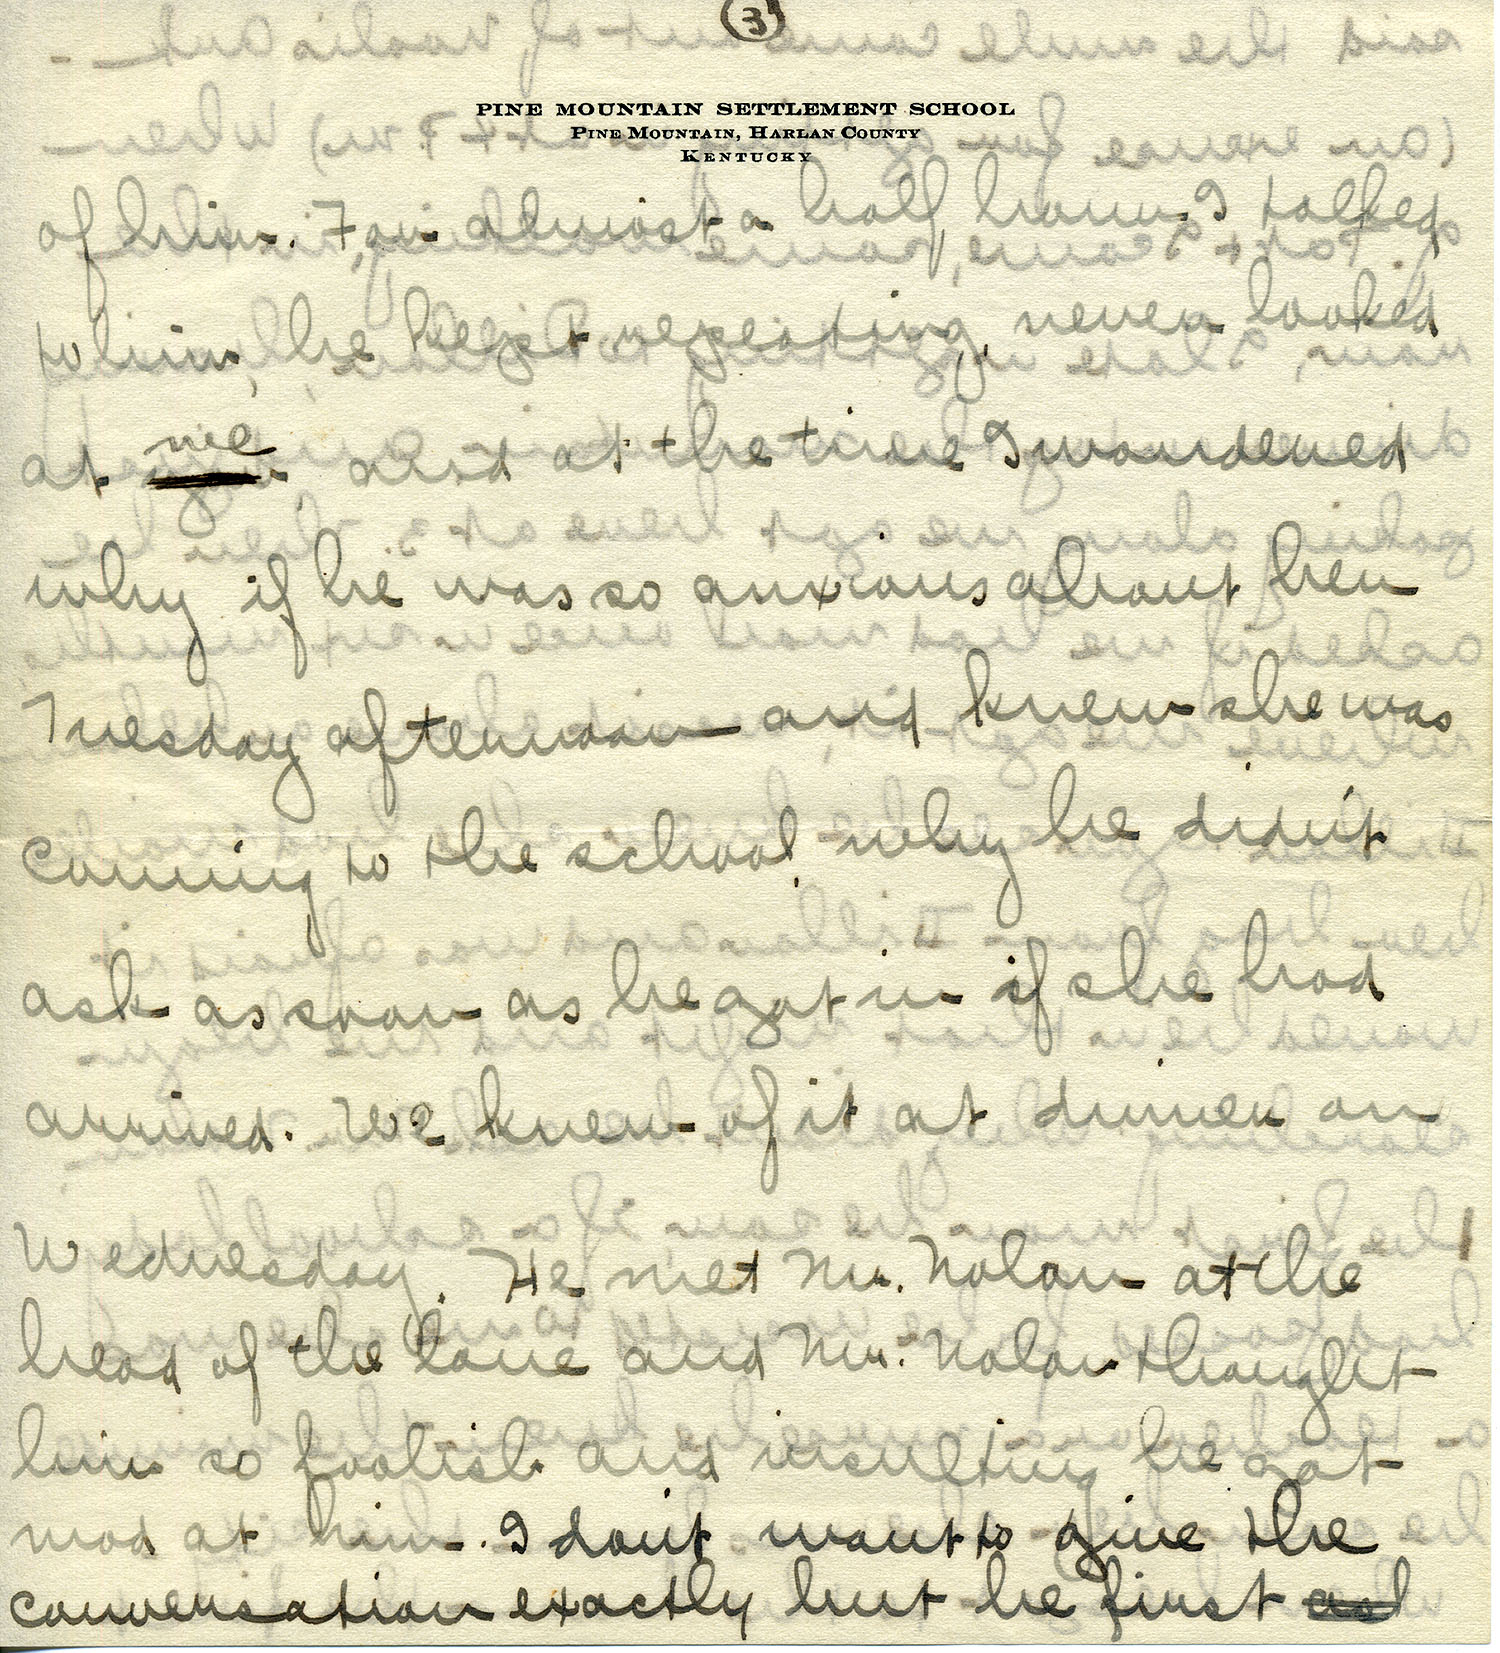 3
PINE MOUNTAIN SETTLEMENT SCHOOL
PINE MOUNTAIN, HARLAN COUNTY
KENTUCKY
of him. For almost a half hour I talked
to him, he kept repeating, never looked
at me and at the time I wondered
why if he was so anxious about her
Tuesday afternoon and knew she was
coming to the school why he didn't
ask as soon as he got in if she had
arrived. We knew of it at dinner on
Wednesday. He met Mr. Nolan at the
head of the lane and Mr. Nolan thought
him so foolish and insulting he got
mad at him. I don't want to give the
conversation exactly but he first